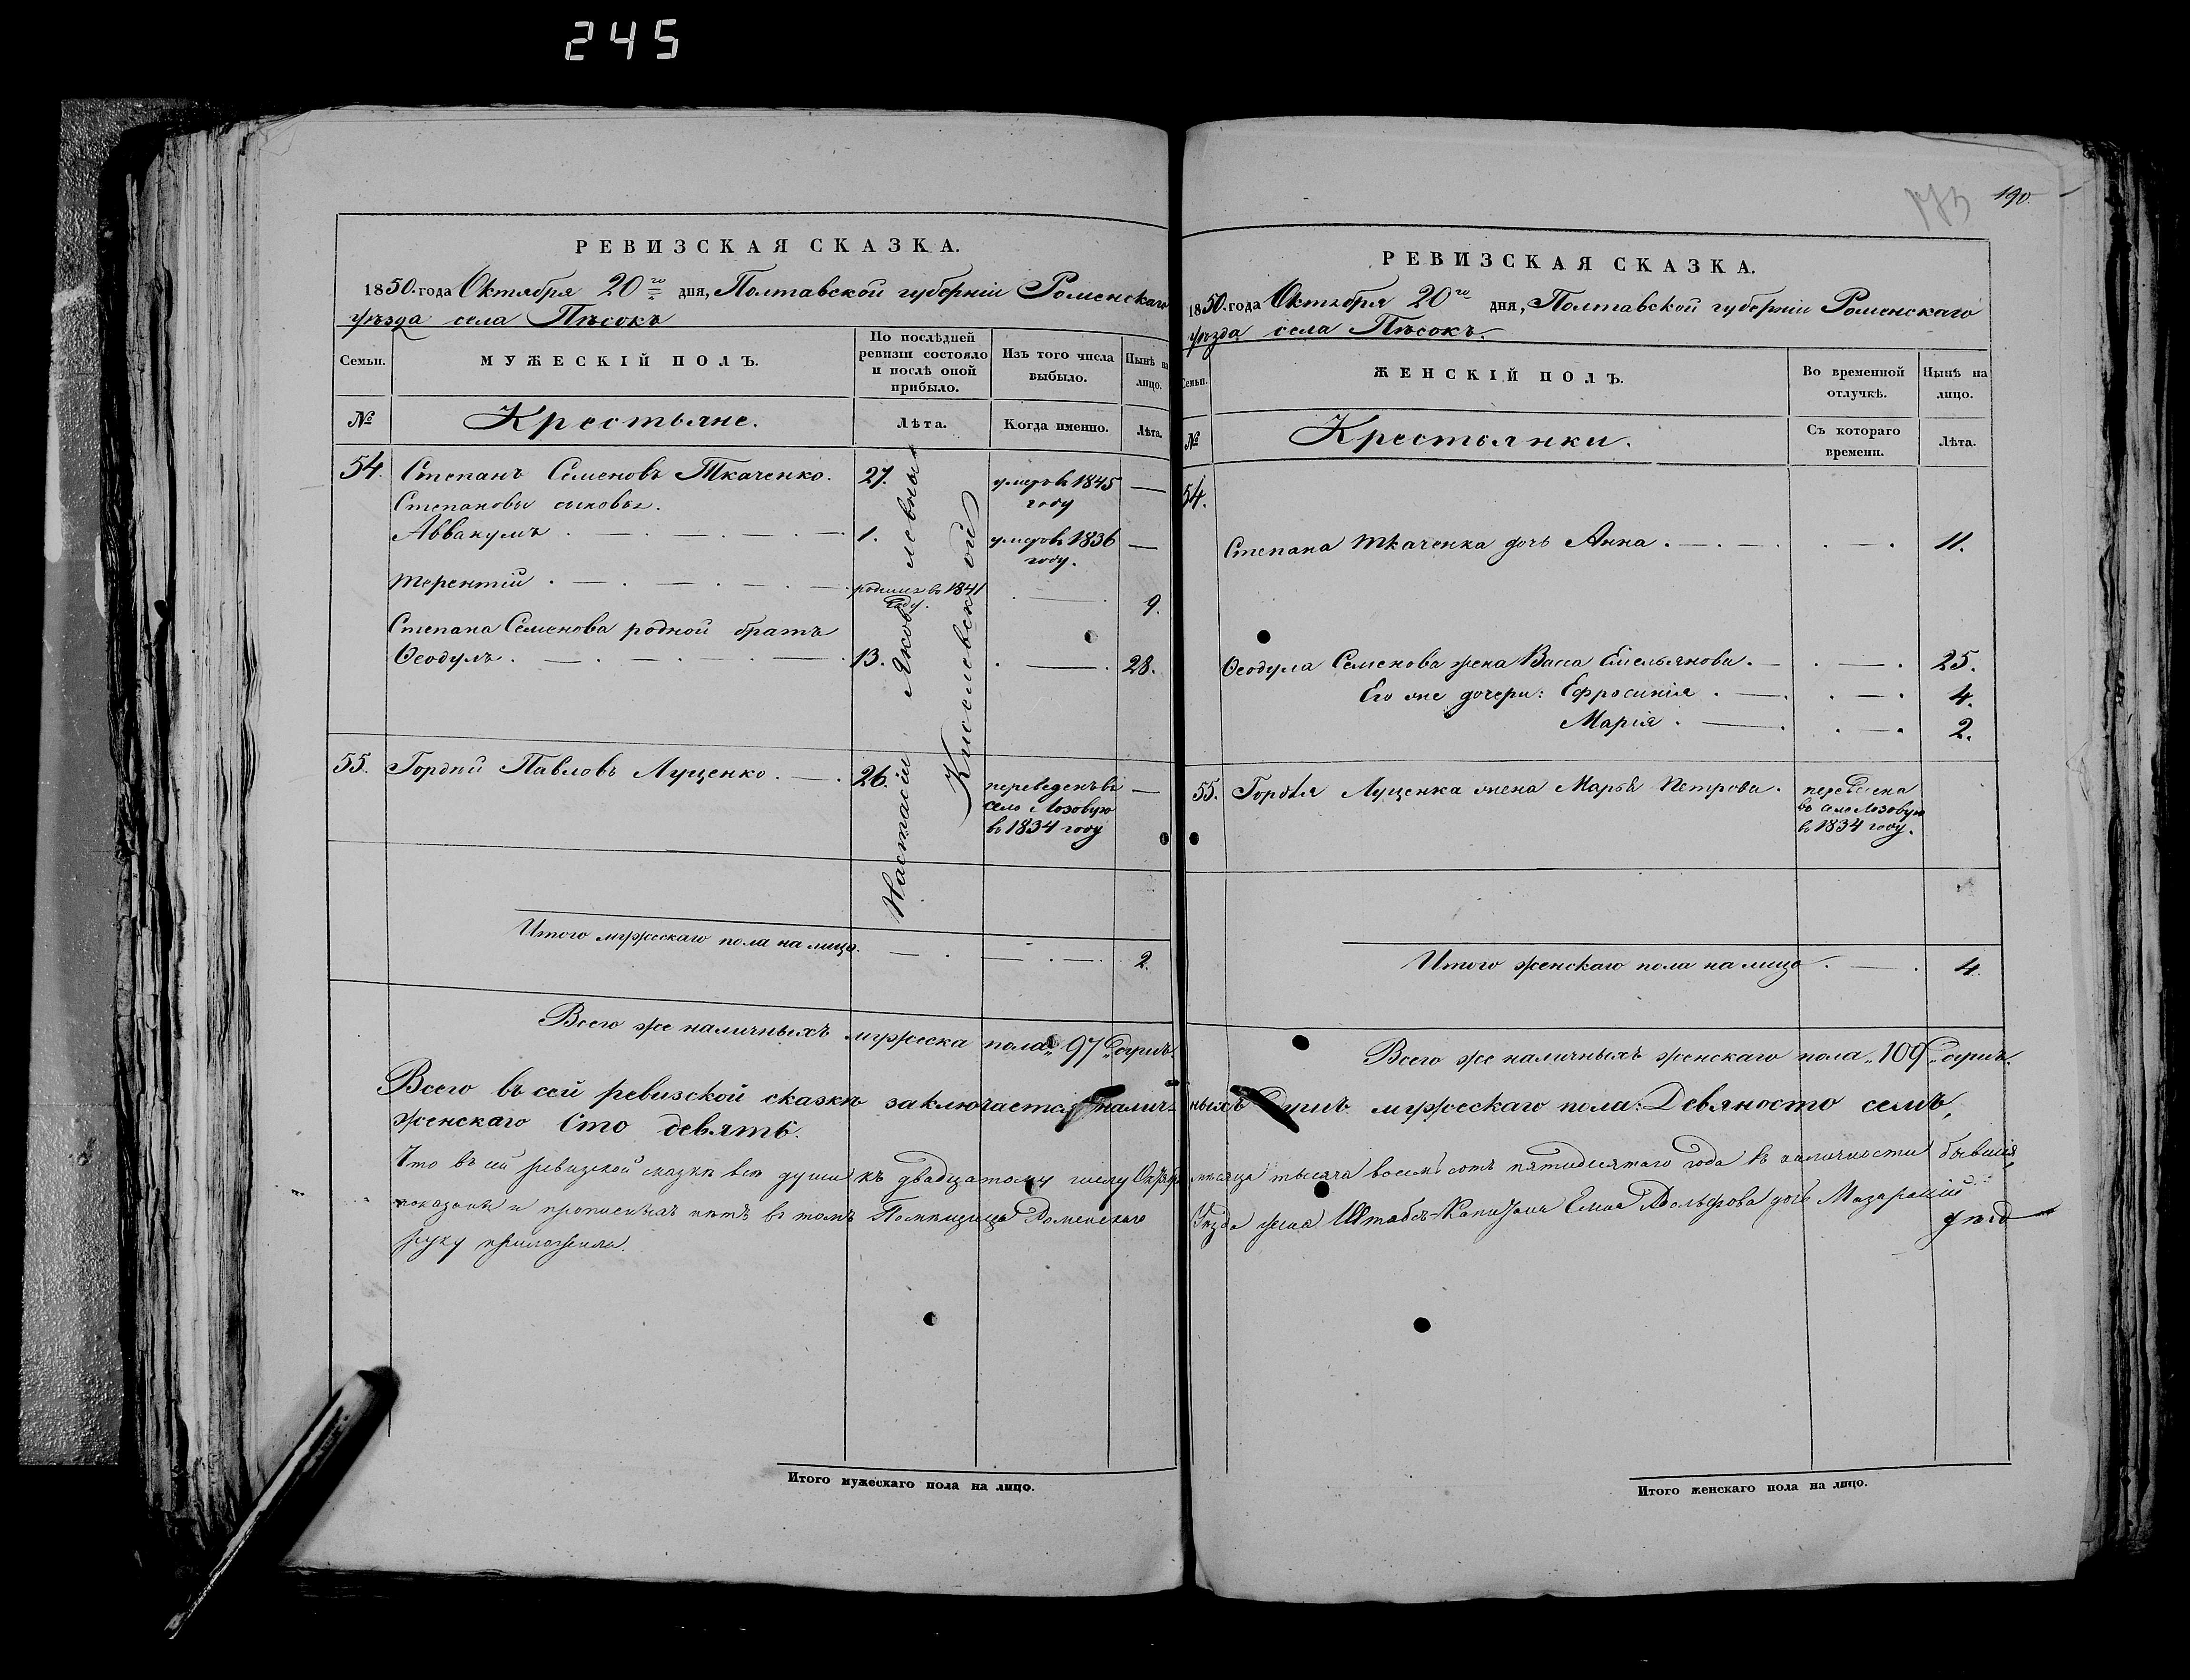 245
РЕВИЗСКАЯ СКАЗКА.
1850. года Октября 20го дня, Полтавской губерніи Роменскаго
уѣзда села Пѣсокъ
Семьи.
МУЖЕСКІЙ ПОЛЪ.
По послѣдней ревизіи состояло и послѣ оной прибыло.
Изъ того числа выбыло.
Нынѣ на лицо.
№
Крестьяне.
Лѣта.
Когда именно.
Лѣта.
54. Степанъ Семеновъ Ткаченко. 27. умеръ въ 1845 году —
Степановы сыновья.
Аввакумъ 1. умеръ въ 1836 году. —
Терентій родился въ 1841 году. 9.
Степана Семенова родной братъ
Ѳеодулъ 13. 28.
55. Гордѣй Павловъ Луценко 26. переведенъ въ село Лозовую въ 1834 году —
Настасіи Яковлевны
Итого мужескаго пола на лицо. 2.
Всего же наличныхъ мужеска пола „97" душъ
Всего въ сей ревизской сказкѣ заключается налич-
женскаго Сто девять.
Что въ сей ревизской сказкѣ всѣ души къ двадцатому числу
показаны и прописныхъ нѣтъ въ томъ Помѣщица Роменскаго
руку приложила.
Итого мужескаго пола на лицо.
190.
РЕВИЗСКАЯ СКАЗКА.
1850. года Октября 20го дня, Полтавской губерніи Роменскаго
уѣзда села Пѣсокъ.
Семьи.
ЖЕНСКІЙ ПОЛЪ.
Во временной отлучкѣ.
Нынѣ на лицо.
№
Крестьянки.
Съ котораго времени.
Лѣта.
54.
Степана Ткаченка дочь Анна 11.
Ѳеодула Семенова жена Васса Емельянова. 25.
Его же дочери: Ефросинія 4.
Марія 2.
55. Гордѣя Луценка жена Марья Петрова. переведена въ село Лозовую въ 1834 году.
Итого женскаго пола на лицо 4.
Всего же наличныхъ женскаго пола „109" душъ.
ныхъ Душъ мужескаго пола: Девяносто семь,
мѣсяца тысяча восемь сотъ пятидесятаго года въ наличности бывшія
Уѣзда жена Штабсъ-Капитана дочь
Итого женскаго пола на лицо.